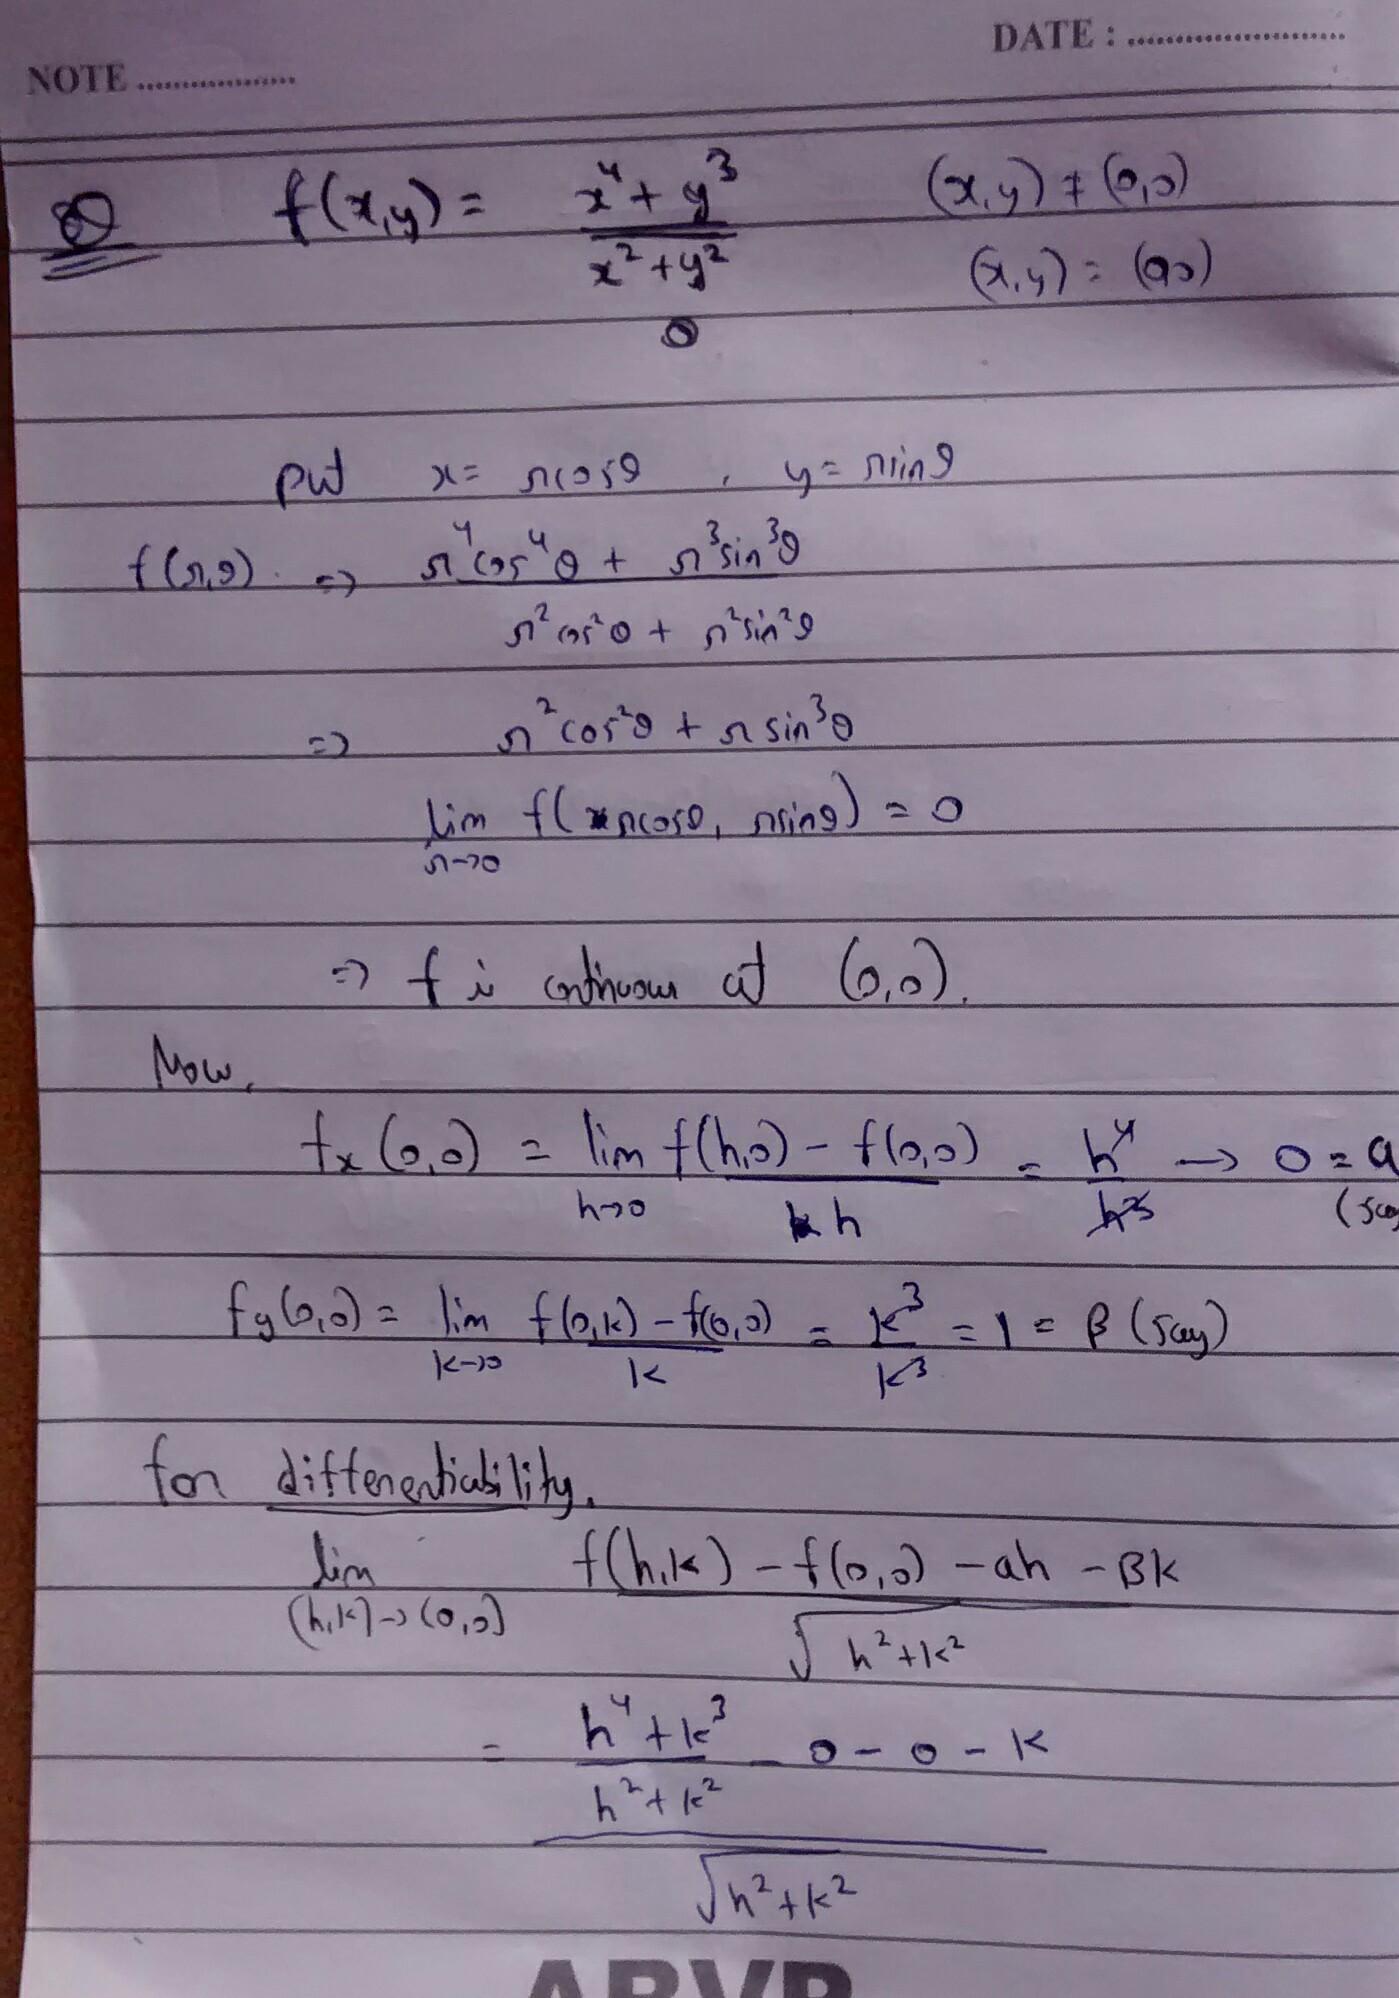 DATE : ........................
NOTE ..................
Q f(x,y) = x⁴ + y³ / x² + y² (x,y) ≠ (0,0)
0 (x,y) = (0,0)
put x = rcosθ , y = rsinθ
f(r,θ) ⇒ r⁴cos⁴θ + r³sin³θ / r²cos²θ + r²sin²θ
⇒ r²cos²θ + r sin³θ
lim r→0 f(rcosθ, rsinθ) = 0
⇒ f is continuous at (0,0).
Now,
fx(0,0) = lim h→0 f(h,0) - f(0,0) / h = h⁴ / h³ → 0 = a
fy(0,0) = lim k→0 f(0,k) - f(0,0) / k = k³ / k³ = 1 = β (say)
for differentiability,
lim (h,k)→(0,0) f(h,k) - f(0,0) - ah - βk / √h²+k²
= h⁴ + k³ / h² + k² - 0 - 0 - k / √h²+k²